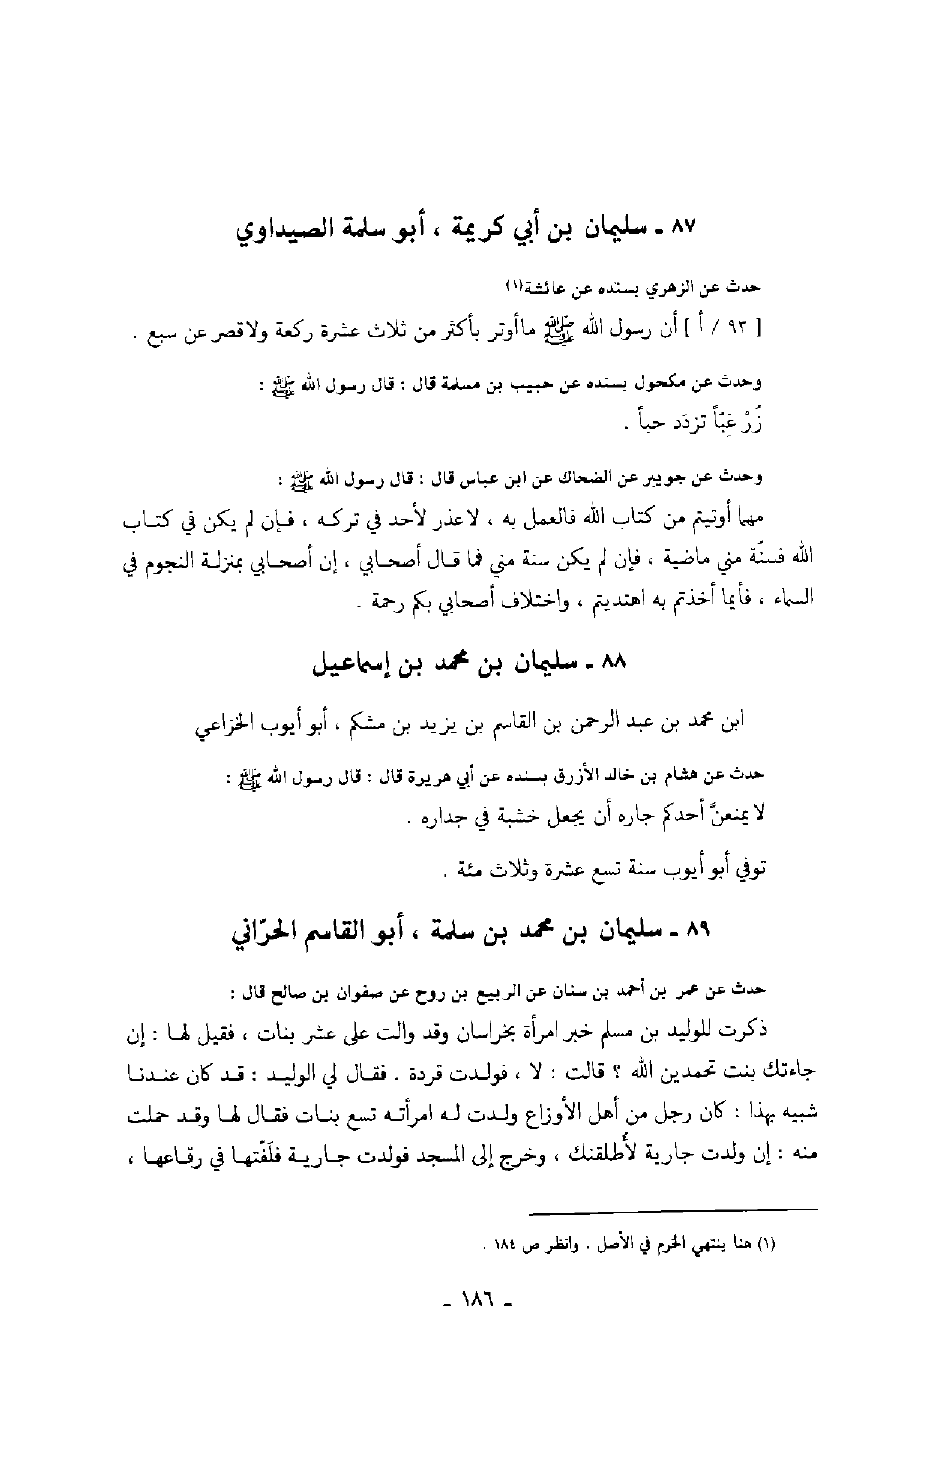 ٨٧ ـ سليمان بن أبي كريمة ، أبو سلمة الصيداوي
حدث عن الزهري بسنده عن عائشة(١)
[ ٩٣ / أ ] أن رسول الله ﷺ ماأوتر بأكثر من ثلاث عشرة ركعة ولاقصر عن سبع .
وحدث عن مكحول بسنده عن حبيب بن مسلمة قال : قال رسول الله ﷺ :
زُرْ غِبّاً تزدَد حباً .
وحدث عن جويبر عن الضحاك عن ابن عباس قال : قال رسول الله ﷺ :
مهما أوتيتم من كتاب الله فالعمل به ، لاعذر لأحد في تركه ، فإن لم يكن في كتاب
الله فسنّة مني ماضية ، فإن لم يكن سنة مني فما قال أصحابي ، إن أصحابي بمنزلة النجوم في
السماء ، فأيما أخذتم به اهتديتم ، واختلاف أصحابي بكم رحمة .
٨٨ ـ سليمان بن محمد بن إسماعيل
ابن محمد بن عبد الرحمن بن القاسم بن يزيد بن مشكم ، أبو أيوب الخزاعي
حدث عن هشام بن خالد الأزرق بسنده عن أبي هريرة قال : قال رسول الله ﷺ :
لايمنعنَّ أحدكم جاره أن يجعل خشبة في جداره .
توفي أبو أيوب سنة تسع عشرة وثلاث مئة .
٨٩ ـ سليمان بن محمد بن سلمة ، أبو القاسم الحرّاني
حدث عن عمر بن أحمد بن سنان عن الربيع بن روح عن صفوان بن صالح قال :
ذكرت للوليد بن مسلم خبر امرأة بخراسان وقد والت على عشر بنات ، فقيل لها : إن
جاءتك بنت تحمدين الله ؟ قالت : لا ، فولدت قردة . فقال لي الوليد : قد كان عندنا
شبيه بهذا : كان رجل من أهل الأوزاع ولدت له امرأته تسع بنات فقال لها وقد حملت
منه : إن ولدت جارية لأُطلقنك ، وخرج إلى المسجد فولدت جارية فلَفّتها في رقاعها ،
(١) هنا ينتهي الخرم في الأصل . وانظر ص ١٨٤ .
ـ ١٨٦ ـ